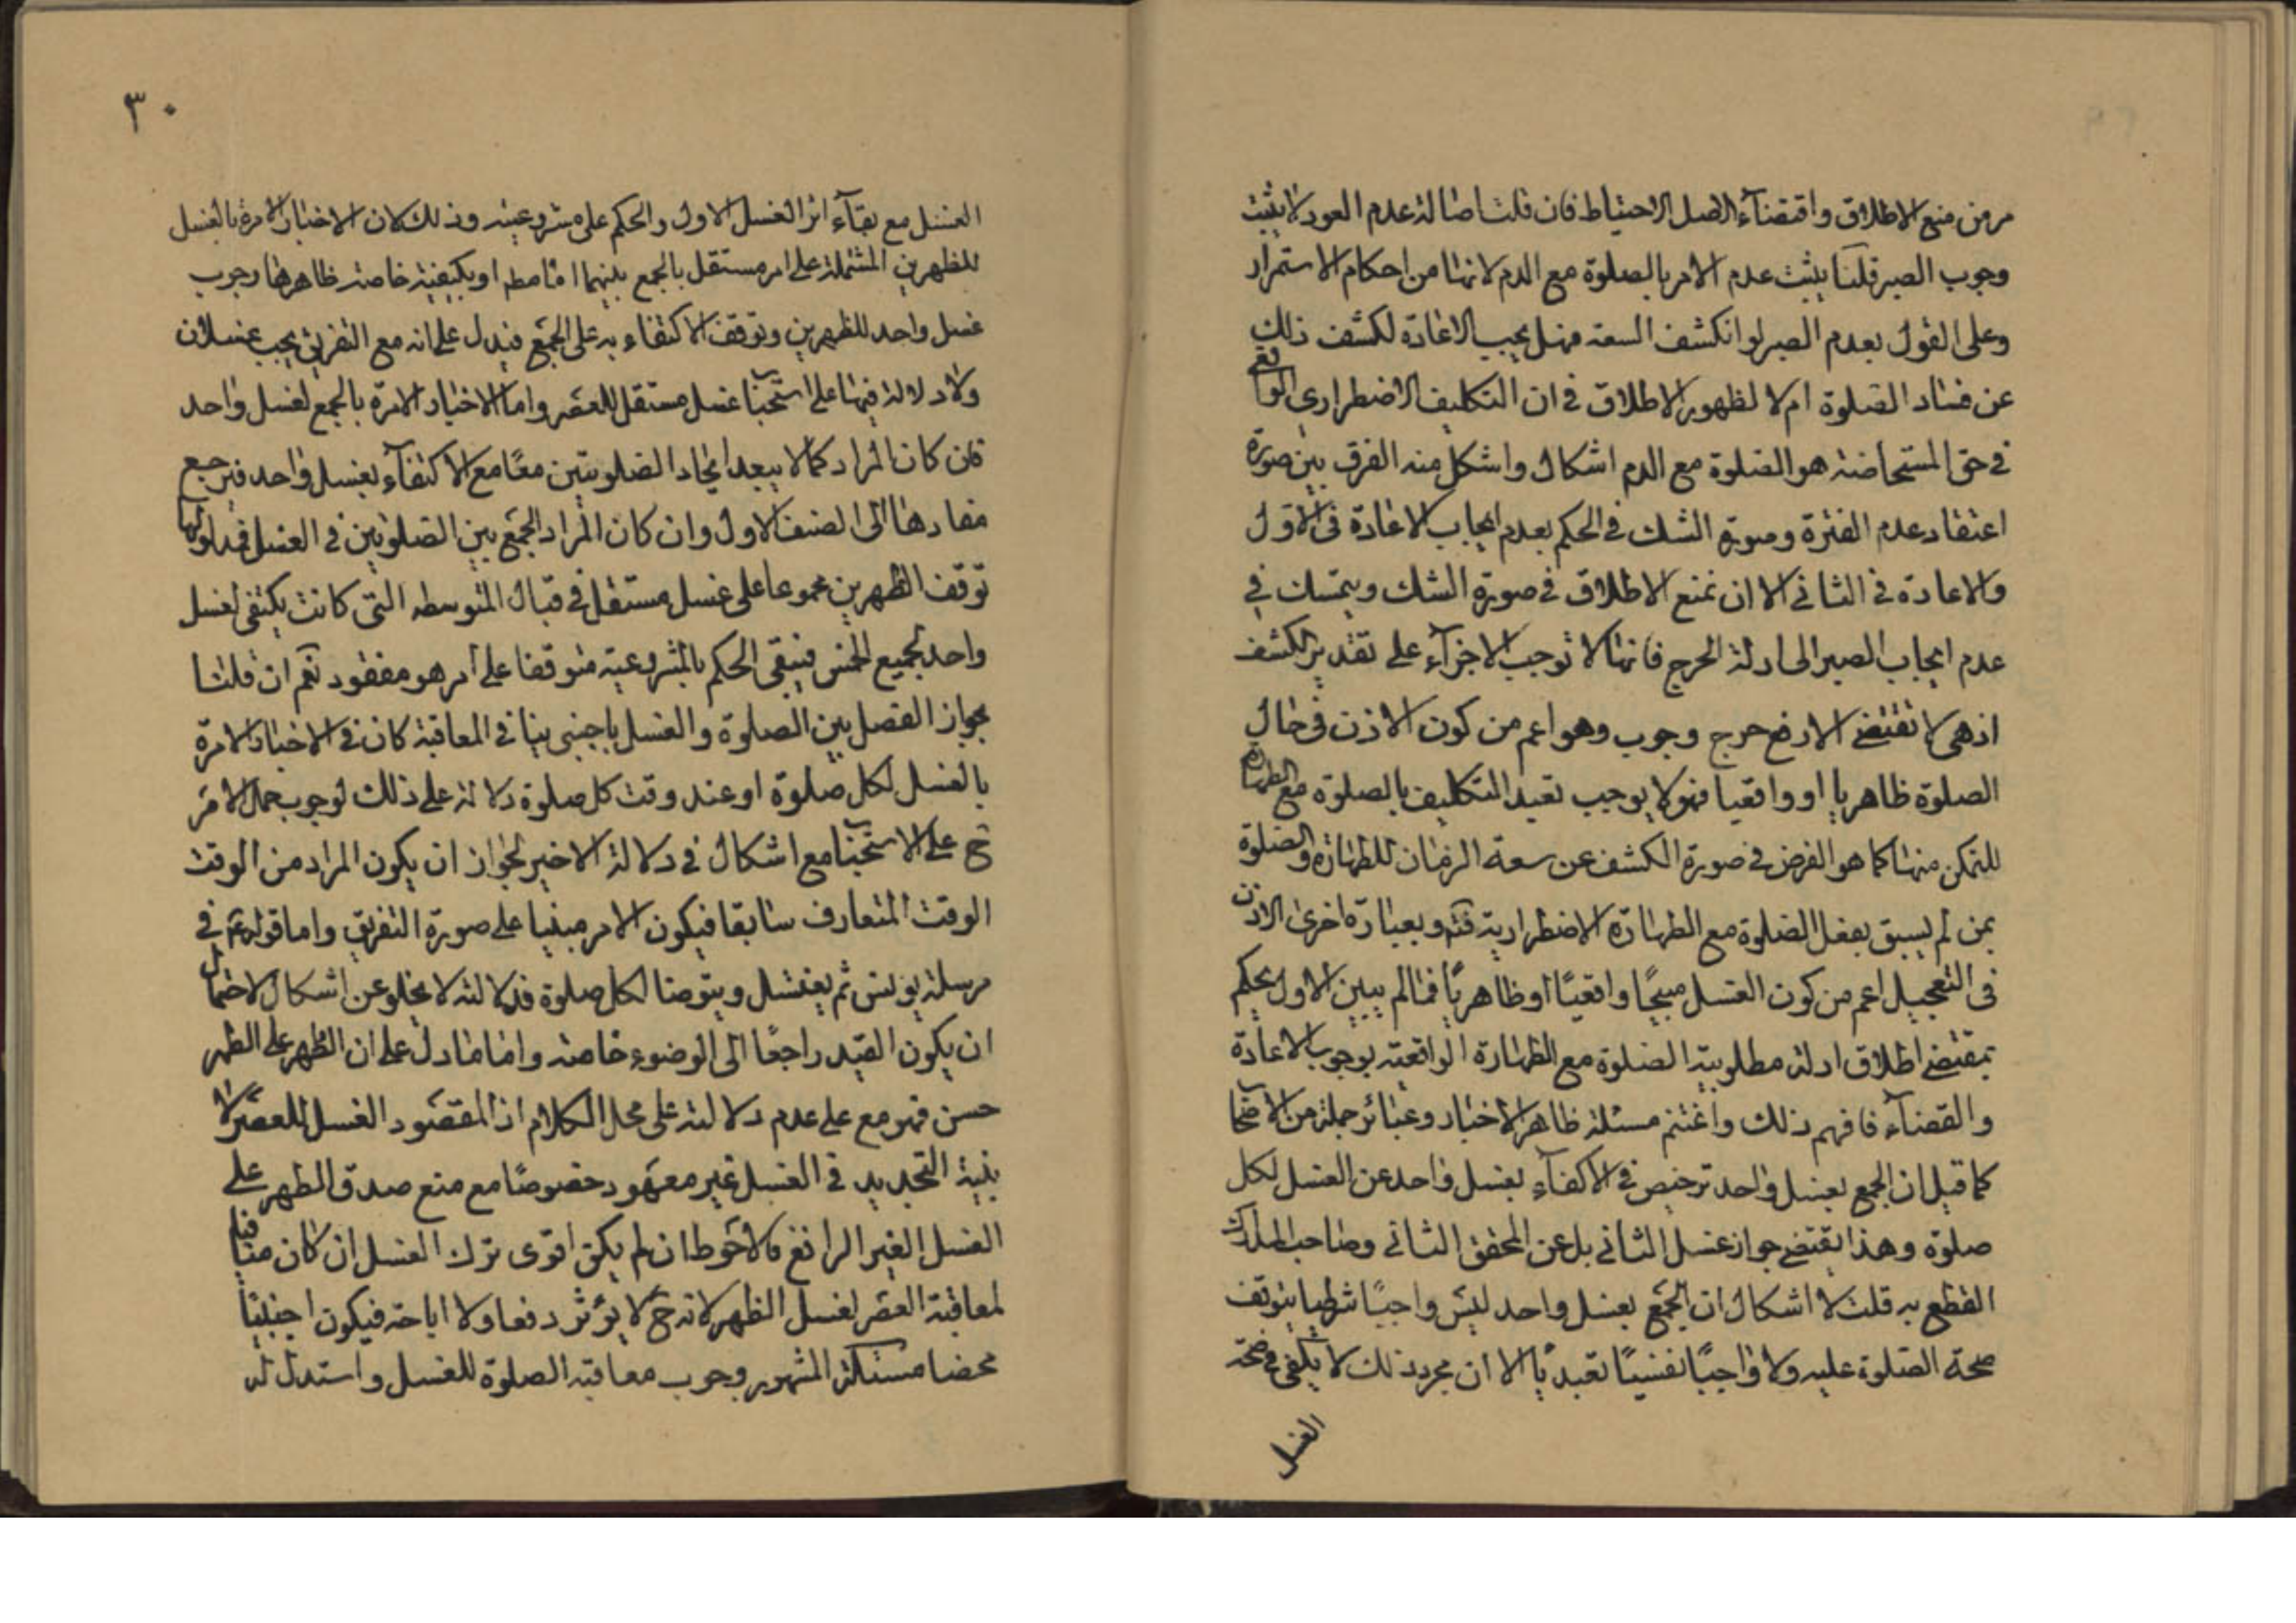 مر من منع الاطلاق واقتضآء الاصل الاحتياط فان قلت اصالة عدم العود لا يثبت
وجوب الصبر قلنا يثبت عدم الامر بالصلوة مع الدم لانها من احكام الاستمرار
وعلى القول بعدم الصبر لو انكشف السعة فهل يجب الاعادة لكشف ذلك
عن فساد الصلوة ام لا لظهور الاطلاق في ان التكليف الاضطراري الواقعى
في حق المستحاضة هو الصلوة مع الدم اشكال واشكل منه الفرق بين صورة
اعتقاد عدم الفترة وصورة الشك في الحكم بعدم ايجاب الاعادة في الاول
والاعادة في الثاني الا ان نمنع الاطلاق في صورة الشك ويتمسك في
عدم ايجاب الصبر الى ادلة الحرج فانها لا توجب الاجزآء على تقدير الكشف
اذ هي لا تقتضي الا رفع حرج وجوب وهو اعم من كون الاذن في حال
الصلوة ظاهريا او واقعيا فهو لا يوجب تقييد التكليف بالصلوة مع الطهارة
للتمكن منها كما هو الفرض في صورة الكشف عن سعة الزمان للطهارة والصلوة
بمن لم يسبق بفعل الصلوة مع الطهارة الاضطرارية فته وبعبارة اخرى الاذن
في التعجيل اعم من كون الغسل مبيحًا واقعيًا او ظاهريًا فما لم يبين الاول يحكم
بمقتضى اطلاق ادلة مطلوبية الصلوة مع الطهارة الواقعية بوجوب الاعادة
والقضآء فافهم ذلك واغتنم مسئلة ظاهر الاخبار وعبائر جملة من الاصحاب
كما قيل ان الجمع بغسل واحد ترخيص في الاكتفآء بغسل واحد عن الغسل لكل
صلوة وهذا يقتضى جواز غسل الثاني بل عن المحقق الثاني وصاحب المدارك
القطع به قلت لا اشكال ان الجمع بغسل واحد ليس واجبًا شرطيا يتوقف
صحة الصلوة عليه ولا واجبًا نفسيًا تعبديًا الا ان مجرد ذلك لا يكفى في صحة
الغسل
٣٠
الغسل مع بقآء اثر الغسل الاول والحكم على مشروعيته وذلك لان الاخبار الامرة بالغسل
للظهرين المشتملة على امر مستقل بالجمع بينهما اما مطه او بكيفية خاصة ظاهرها وجوب
غسل واحد للظهرين وتوقف الاكتفاء به على الجمع فيدل على انه مع التفريق يجب غسلان
ولا دلالة فيها على استحبا غسل مستقل للعصر واما الاخبار الامرة بالجمع لغسل واحد
فان كان المراد كما لا يبعد ايجاد الصلوتين معًا مع الاكتفآء بغسل واحد فيرجع
مفادها الى الصنف الاول وان كان المراد الجمع بين الصلوتين في الغسل فمدلولها
توقف الظهرين مجموعا على غسل مستقل في قبال المتوسطه التي كانت يكتفى لغسل
واحد لجميع الخمس فيبقى الحكم بالمشروعية متوقفا على امر هو مفقود نعم ان قلنا
بجواز الفصل بين الصلوة والغسل باجنبى ينافى المعاقبة كان في الاخبار الامرة
بالغسل لكل صلوة او عند وقت كل صلوة دلالة على ذلك لوجوب حمل الامر
ح على الاستحبا مع اشكال في دلالة الاخير لجواز ان يكون المراد من الوقت
الوقت المتعارف سابقا فيكون الامر مبنيا على صورة التفريق واما قوله ع في
مرسلة يونس ثم يغتسل ويتوضا لكل صلوة فدلالته لا يخلو عن اشكال لاحتمال
ان يكون القيد راجعًا الى الوضوء خاصة واما ما دل على ان الطهر على الطهر
حسن فهو مع على عدم دلالته على محل الكلام اذ المقصود الغسل للعصر لا
بنية التجديد في الغسل غير معهود خصوصًا مع منع صدق الطهر على
الغسل الغير الرافع فالاحوط ان لم يكن اقوى ترك الغسل ان كان منافيا
لمعاقبة العصر لغسل الظهر لانه ح لا يؤثر دفعا ولا اباحة فيكون اجنبيًا
محضا مسئلة المشهور وجوب معاقبة الصلوة للغسل واستدل له